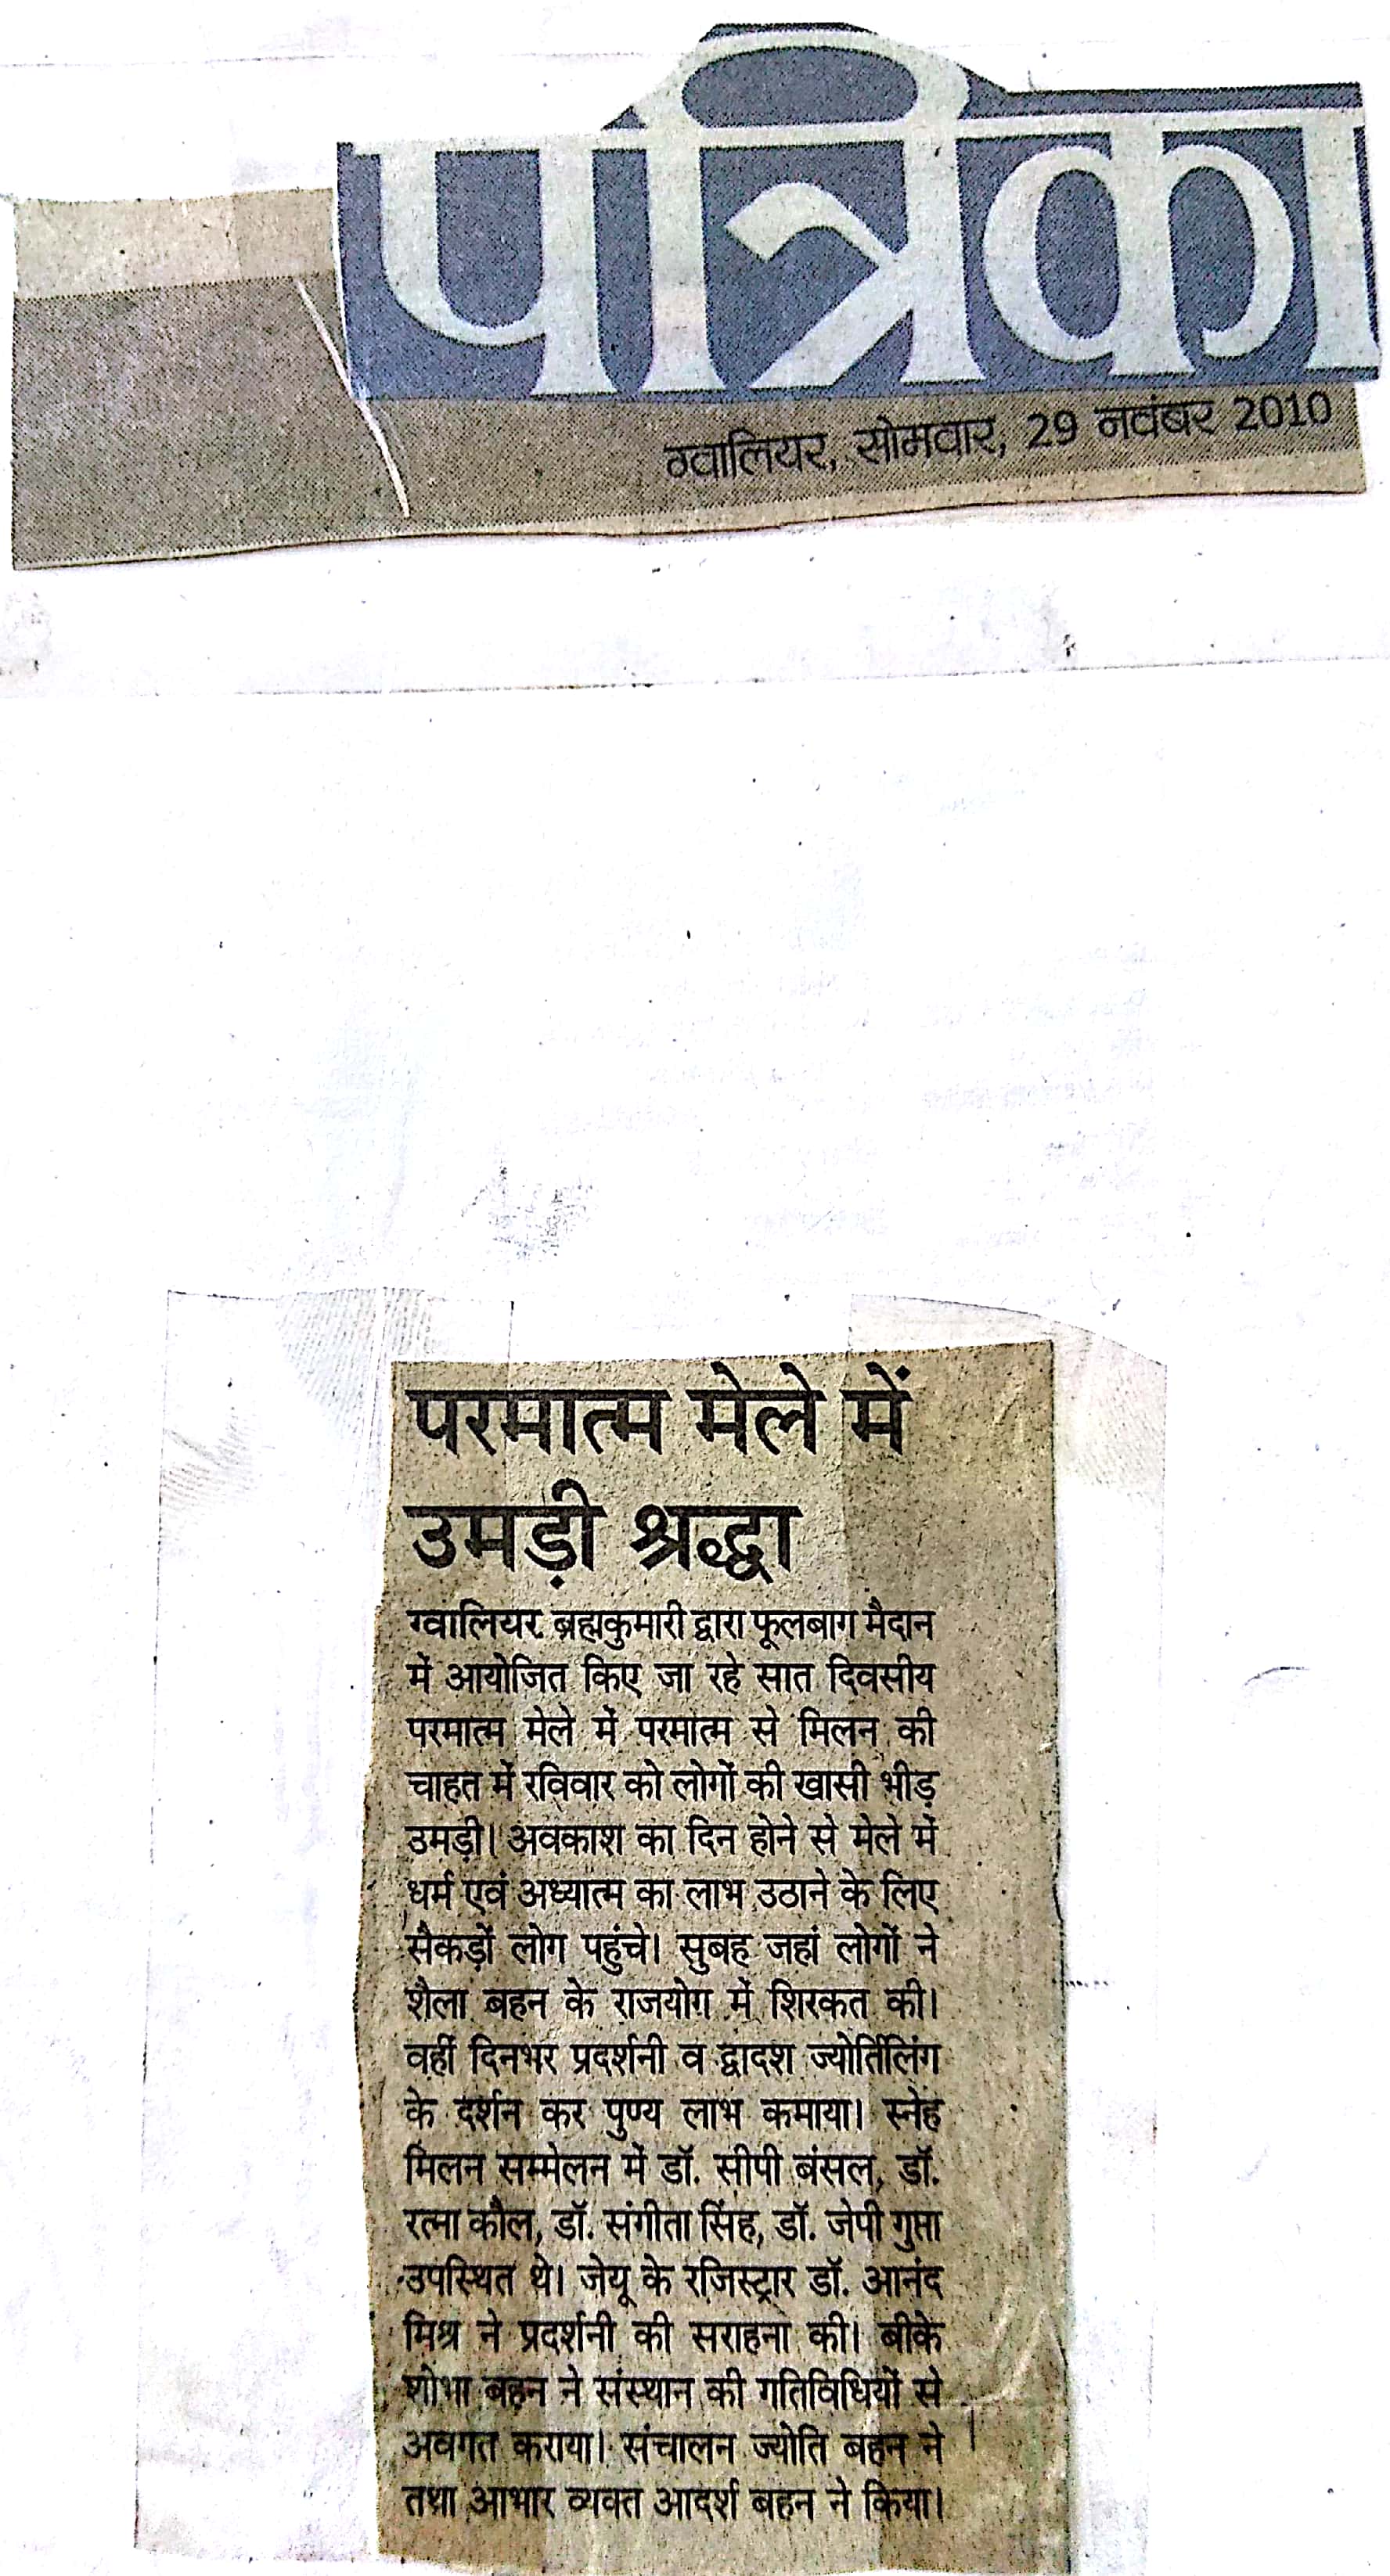 पत्रिका
ग्वालियर, सोमवार, 29 नवंबर 2010
परमात्म मेले में
उमड़ी श्रद्धा
ग्वालियर. ब्रह्मकुमारी द्वारा फूलबाग मैदान
में आयोजित किए जा रहे सात दिवसीय
परमात्म मेले में परमात्म से मिलन की
चाहत में रविवार को लोगों की खासी भीड़
उमड़ी। अवकाश का दिन होने से मेले में
धर्म एवं अध्यात्म का लाभ उठाने के लिए
सैकड़ों लोग पहुंचे। सुबह जहां लोगों ने
शैला बहन के राजयोग में शिरकत की।
वहीं दिनभर प्रदर्शनी व द्वादश ज्योर्तिलिंग
के दर्शन कर पुण्य लाभ कमाया। स्नेह
मिलन सम्मेलन में डॉ. सीपी बंसल, डॉ.
रत्ना कौल, डॉ. संगीता सिंह, डॉ. जेपी गुप्ता
उपस्थित थे। जेयू के रजिस्ट्रार डॉ. आनंद
मिश्र ने प्रदर्शनी की सराहना की। बीके
शोभा बहन ने संस्थान की गतिविधियों से
अवगत कराया। संचालन ज्योति बहन ने
तथा आभार व्यक्त आदर्श बहन ने किया।